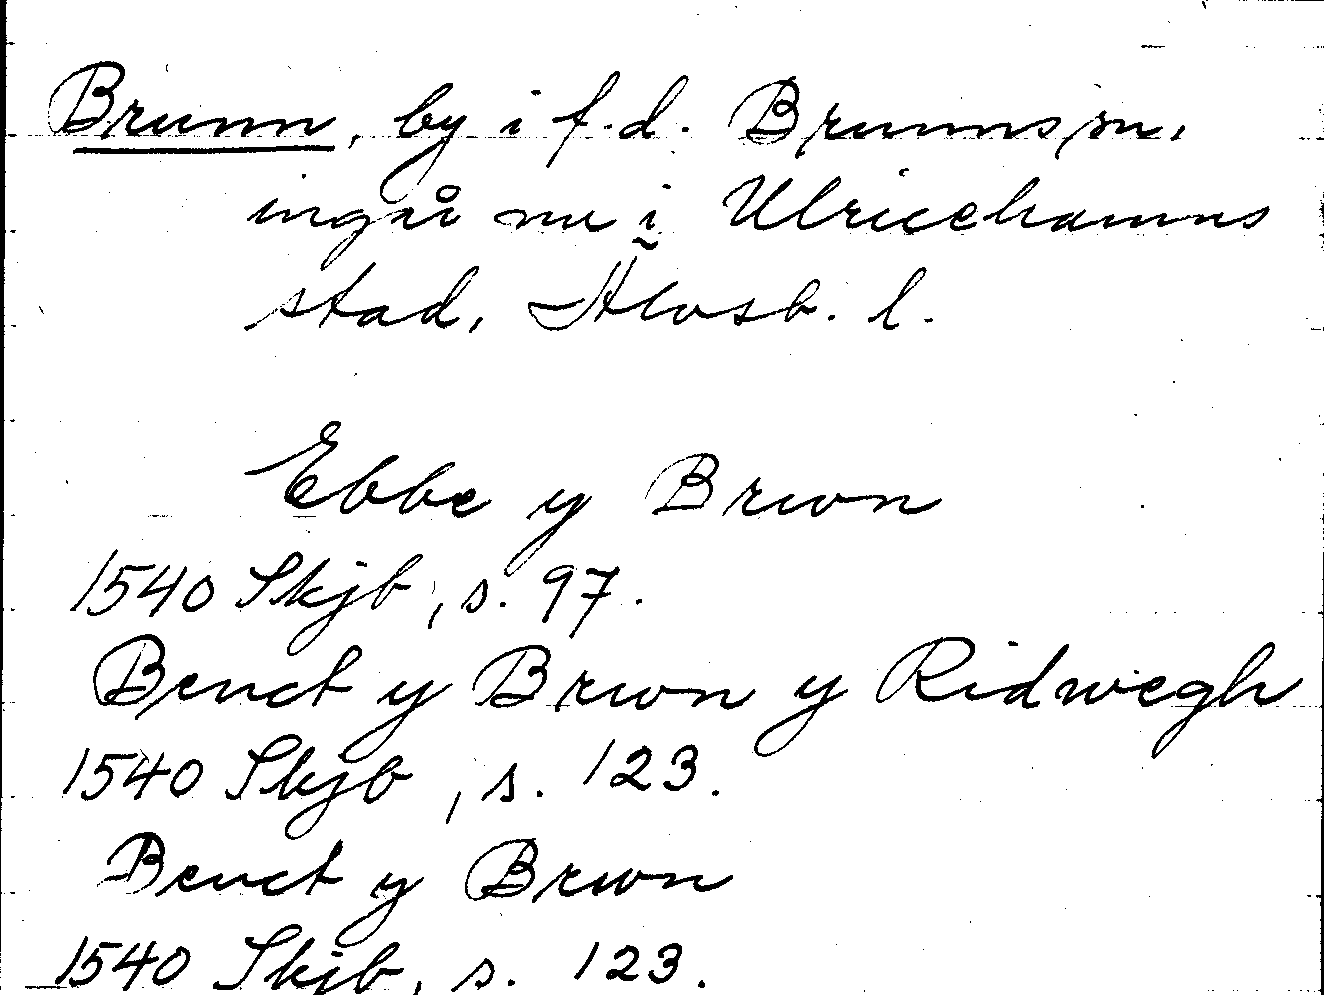 Brunn, by i f.d. Brunns sn,
ingår nu i Ulricehamns
stad, Älvsb. l.
Ebbe y Brwn
1540 Skjb, s. 97.
Benct y Brwn y Ridwegh
1540 Skjb, s. 123.
Benct y Brwn
1540 Skjb, s. 123.